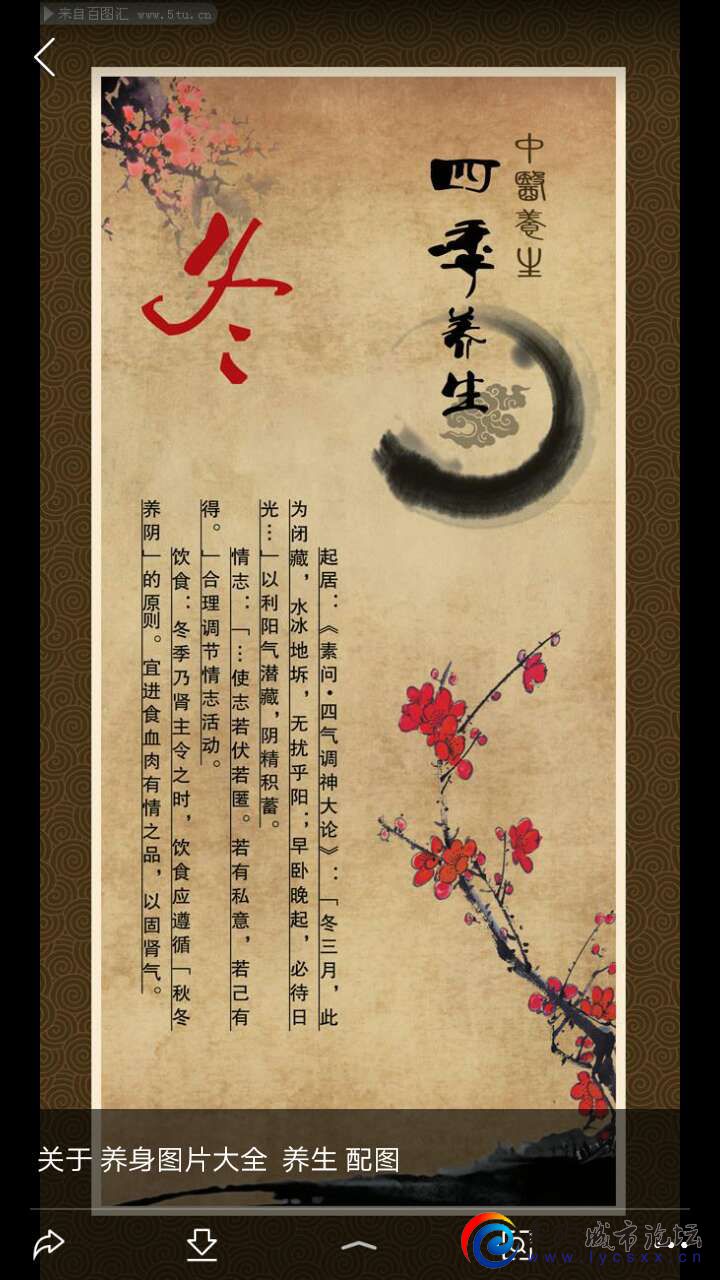 来自百图汇 www.5tu.cn
中醫養生
四季养生
冬
起居：《素问•四气调神大论》：「冬三月，此
为闭藏，水冰地坼，无扰乎阳；早卧晚起，必待日
光…」以利阳气潜藏，阴精积蓄。
情志：「…使志若伏若匿。若有私意，若己有
得。」合理调节情志活动。
饮食：冬季乃肾主令之时，饮食应遵循「秋冬
养阴」的原则。宜进食血肉有情之品，以固肾气。
关于 养身图片大全 养生 配图
城市论坛
www.lycsxx.cn